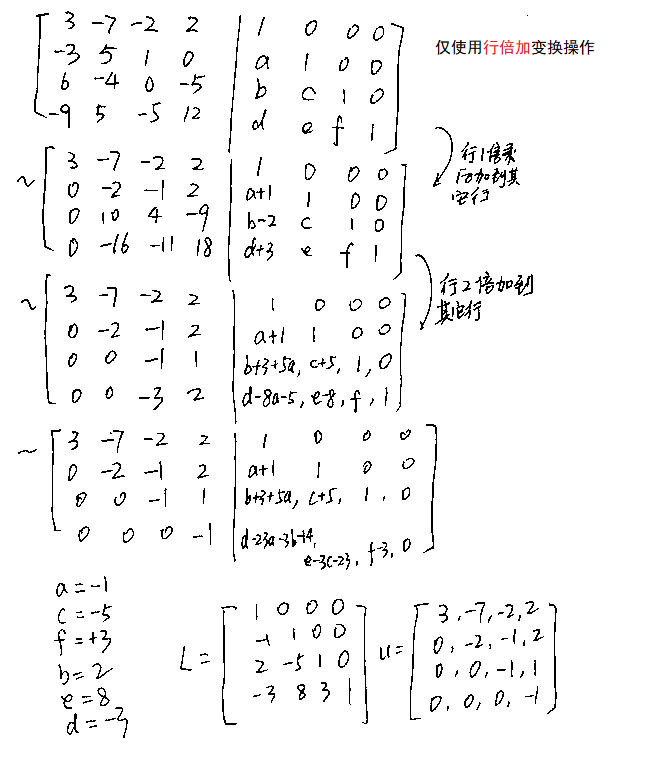 3 -7 -2 2 | 1 0 0 0
仅使用行倍加变换操作
-3 5 1 0 | a 1 0 0
6 -4 0 -5 | b c 1 0
-9 5 -5 12 | d e f 1
行1倍乘
后加到其
它行
~ 3 -7 -2 2 | 1 0 0 0
0 -2 -1 2 | a+1 1 0 0
0 10 4 -9 | b-2 c 1 0
0 -16 -11 18 | d+3 e f 1
行2倍加到
其它行
~ 3 -7 -2 2 | 1 0 0 0
0 -2 -1 2 | a+1 1 0 0
0 0 -1 1 | b+3+5a, c+5, 1, 0
0 0 -3 2 | d-8a-5, e-8, f, 1
~ 3 -7 -2 2 | 1 0 0 0
0 -2 -1 2 | a+1 1 0 0
0 0 -1 1 | b+3+5a, c+5, 1, 0
0 0 0 -1 | d-23a-3b-14,
e-3c-23, f-3, 0
a=-1
c=-5
f=+3
b=2
e=8
d=-3
L=
1 0 0 0
-1 1 0 0
2 -5 1 0
-3 8 3 1
U=
3, -7, -2, 2
0, -2, -1, 2
0, 0, -1, 1
0, 0, 0, -1